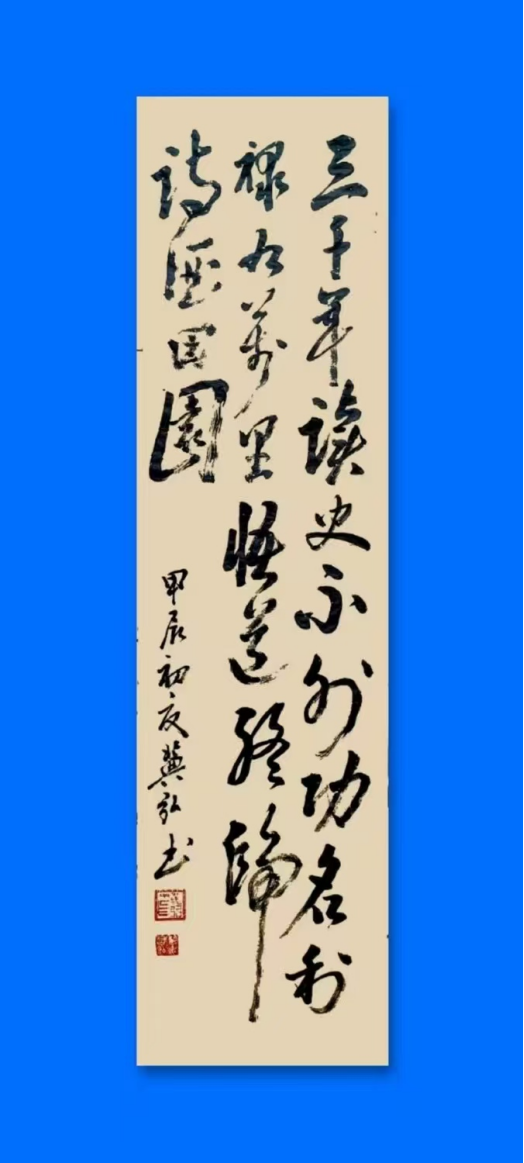 三千年读史不外功名利
禄九萬里悟道終歸
詩酒田園
甲辰初夏 书